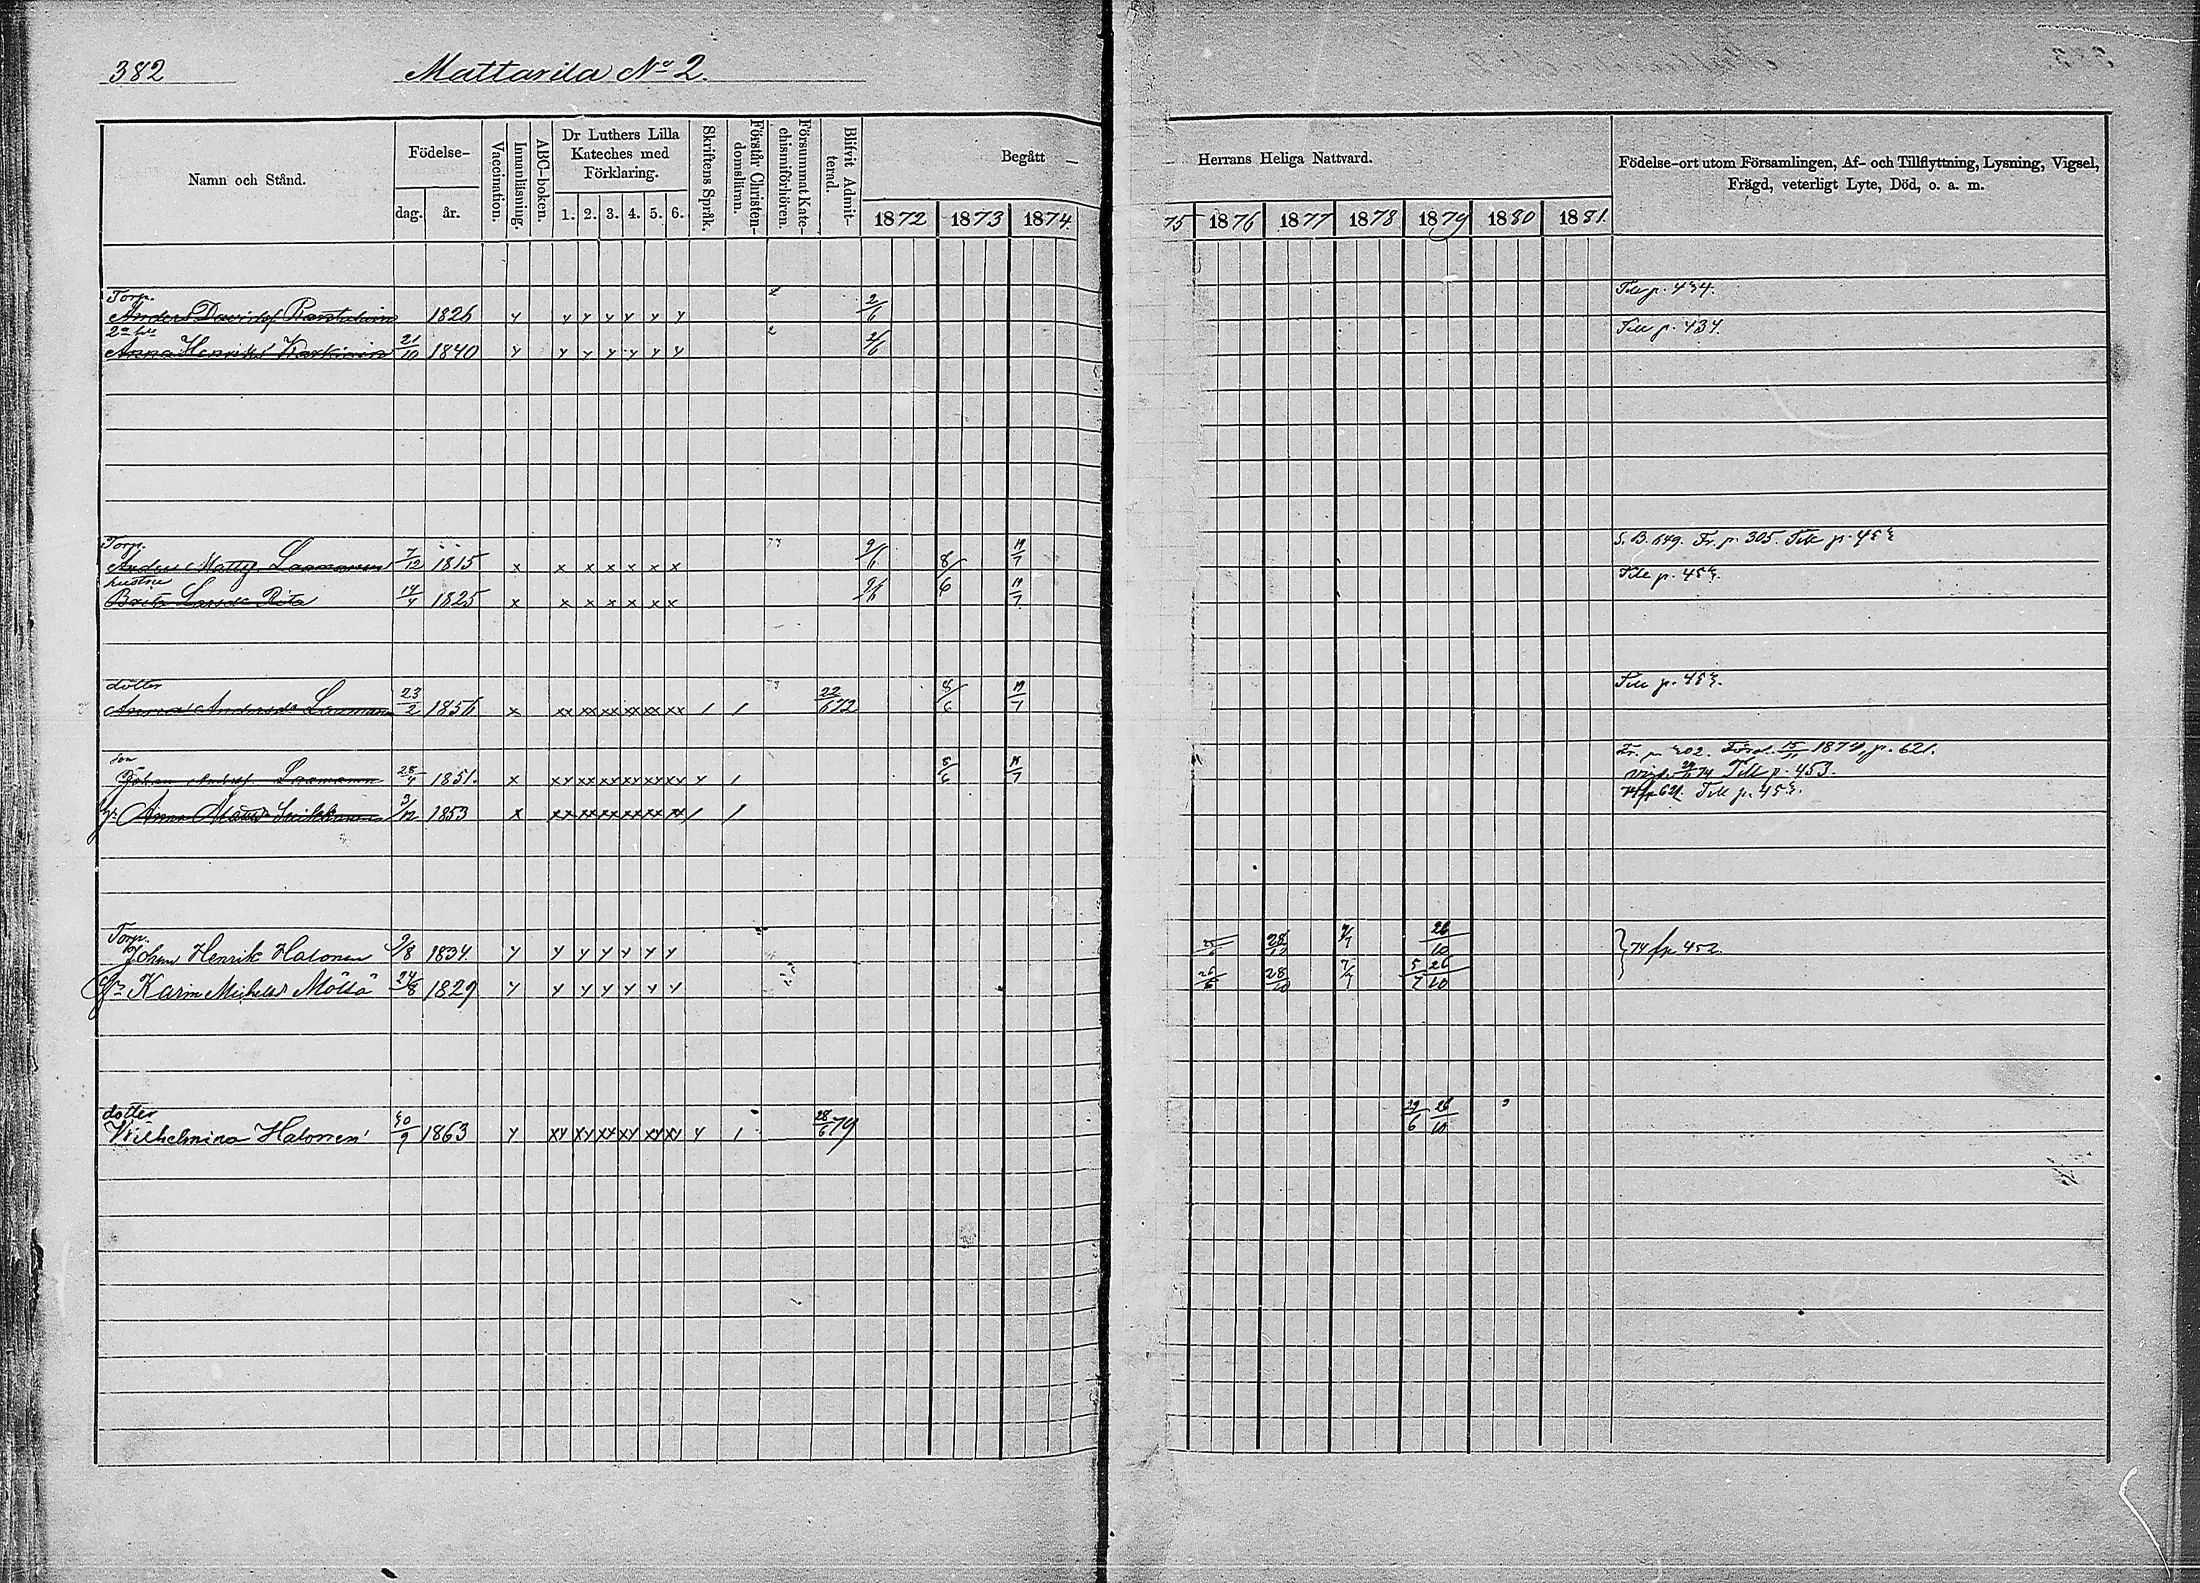 382 Mattarila No 2.
Namn och Stånd. Födelse- dag. år. Vaccination. Innanläsning. ABC-boken. Dr Luthers Lilla Kateches med Förklaring. 1. 2. 3. 4. 5. 6. Skriftens Språk. Förstår Christendomslärnn. Försummat Katechismiförhören. Blifvit Admitterad. Begått
1872 1873 1874.
Herrans Heliga Nattvard.
75 1876 1877 1878 1879 1880 1881.
Födelse-ort utom Församlingen, Af- och Tillflyttning, Lysning, Vigsel,
Frägd, veterligt Lyte, Död, o. a. m.
Torp.
Anders Davidsf 1826 y y y y y y y 2 2/6 Till p. 434.
2a hu
Anna Henriksdr 21/10 1840 y y y y y y y 2 2/6 Till p. 434.
Torp.
Anders Mattsf. Laamanen 7/12 1815 x x x x x x x 9/6 8/6 19/7 S.B. 649. Fr. p. 305. Till p. 453
hustru
Brita Larsdr 14/4 1825 x x x x x x x 9/6 19/7 Till p. 453.
dotter
Anna Andersdr 23/2 1856 x xx xx xx xx xx xx / / 22/6 72 8/6 19/7 Till p. 453.
son
Johan Andersf. Laamanen 28/4 1851. x xy xx xx xx xx xy y / 8/6 19/7 Fr. p. 202. 15/11 1874, p. 621.
74 Till p. 453.
hu Anna Mattsdr 3/12 1853 x xx xx xx xx xx xx / / 74 fr p 621. Till p. 453.
Torp.
Johan Henrik Halonen 9/8 1834. y y y y y y y 25/6 28/10 7/7 26/10 } 74 fr p. 452.
Hu Karin Michelsdr Möttö 24/8 1829 y y y y y y y 26/6 28/10 7/7 5/7 26/10
dotter
Wilhelmina Halonen 30/9 1863 y xy xy xy xy xy xy y / 28/6 79 29/6 26/10